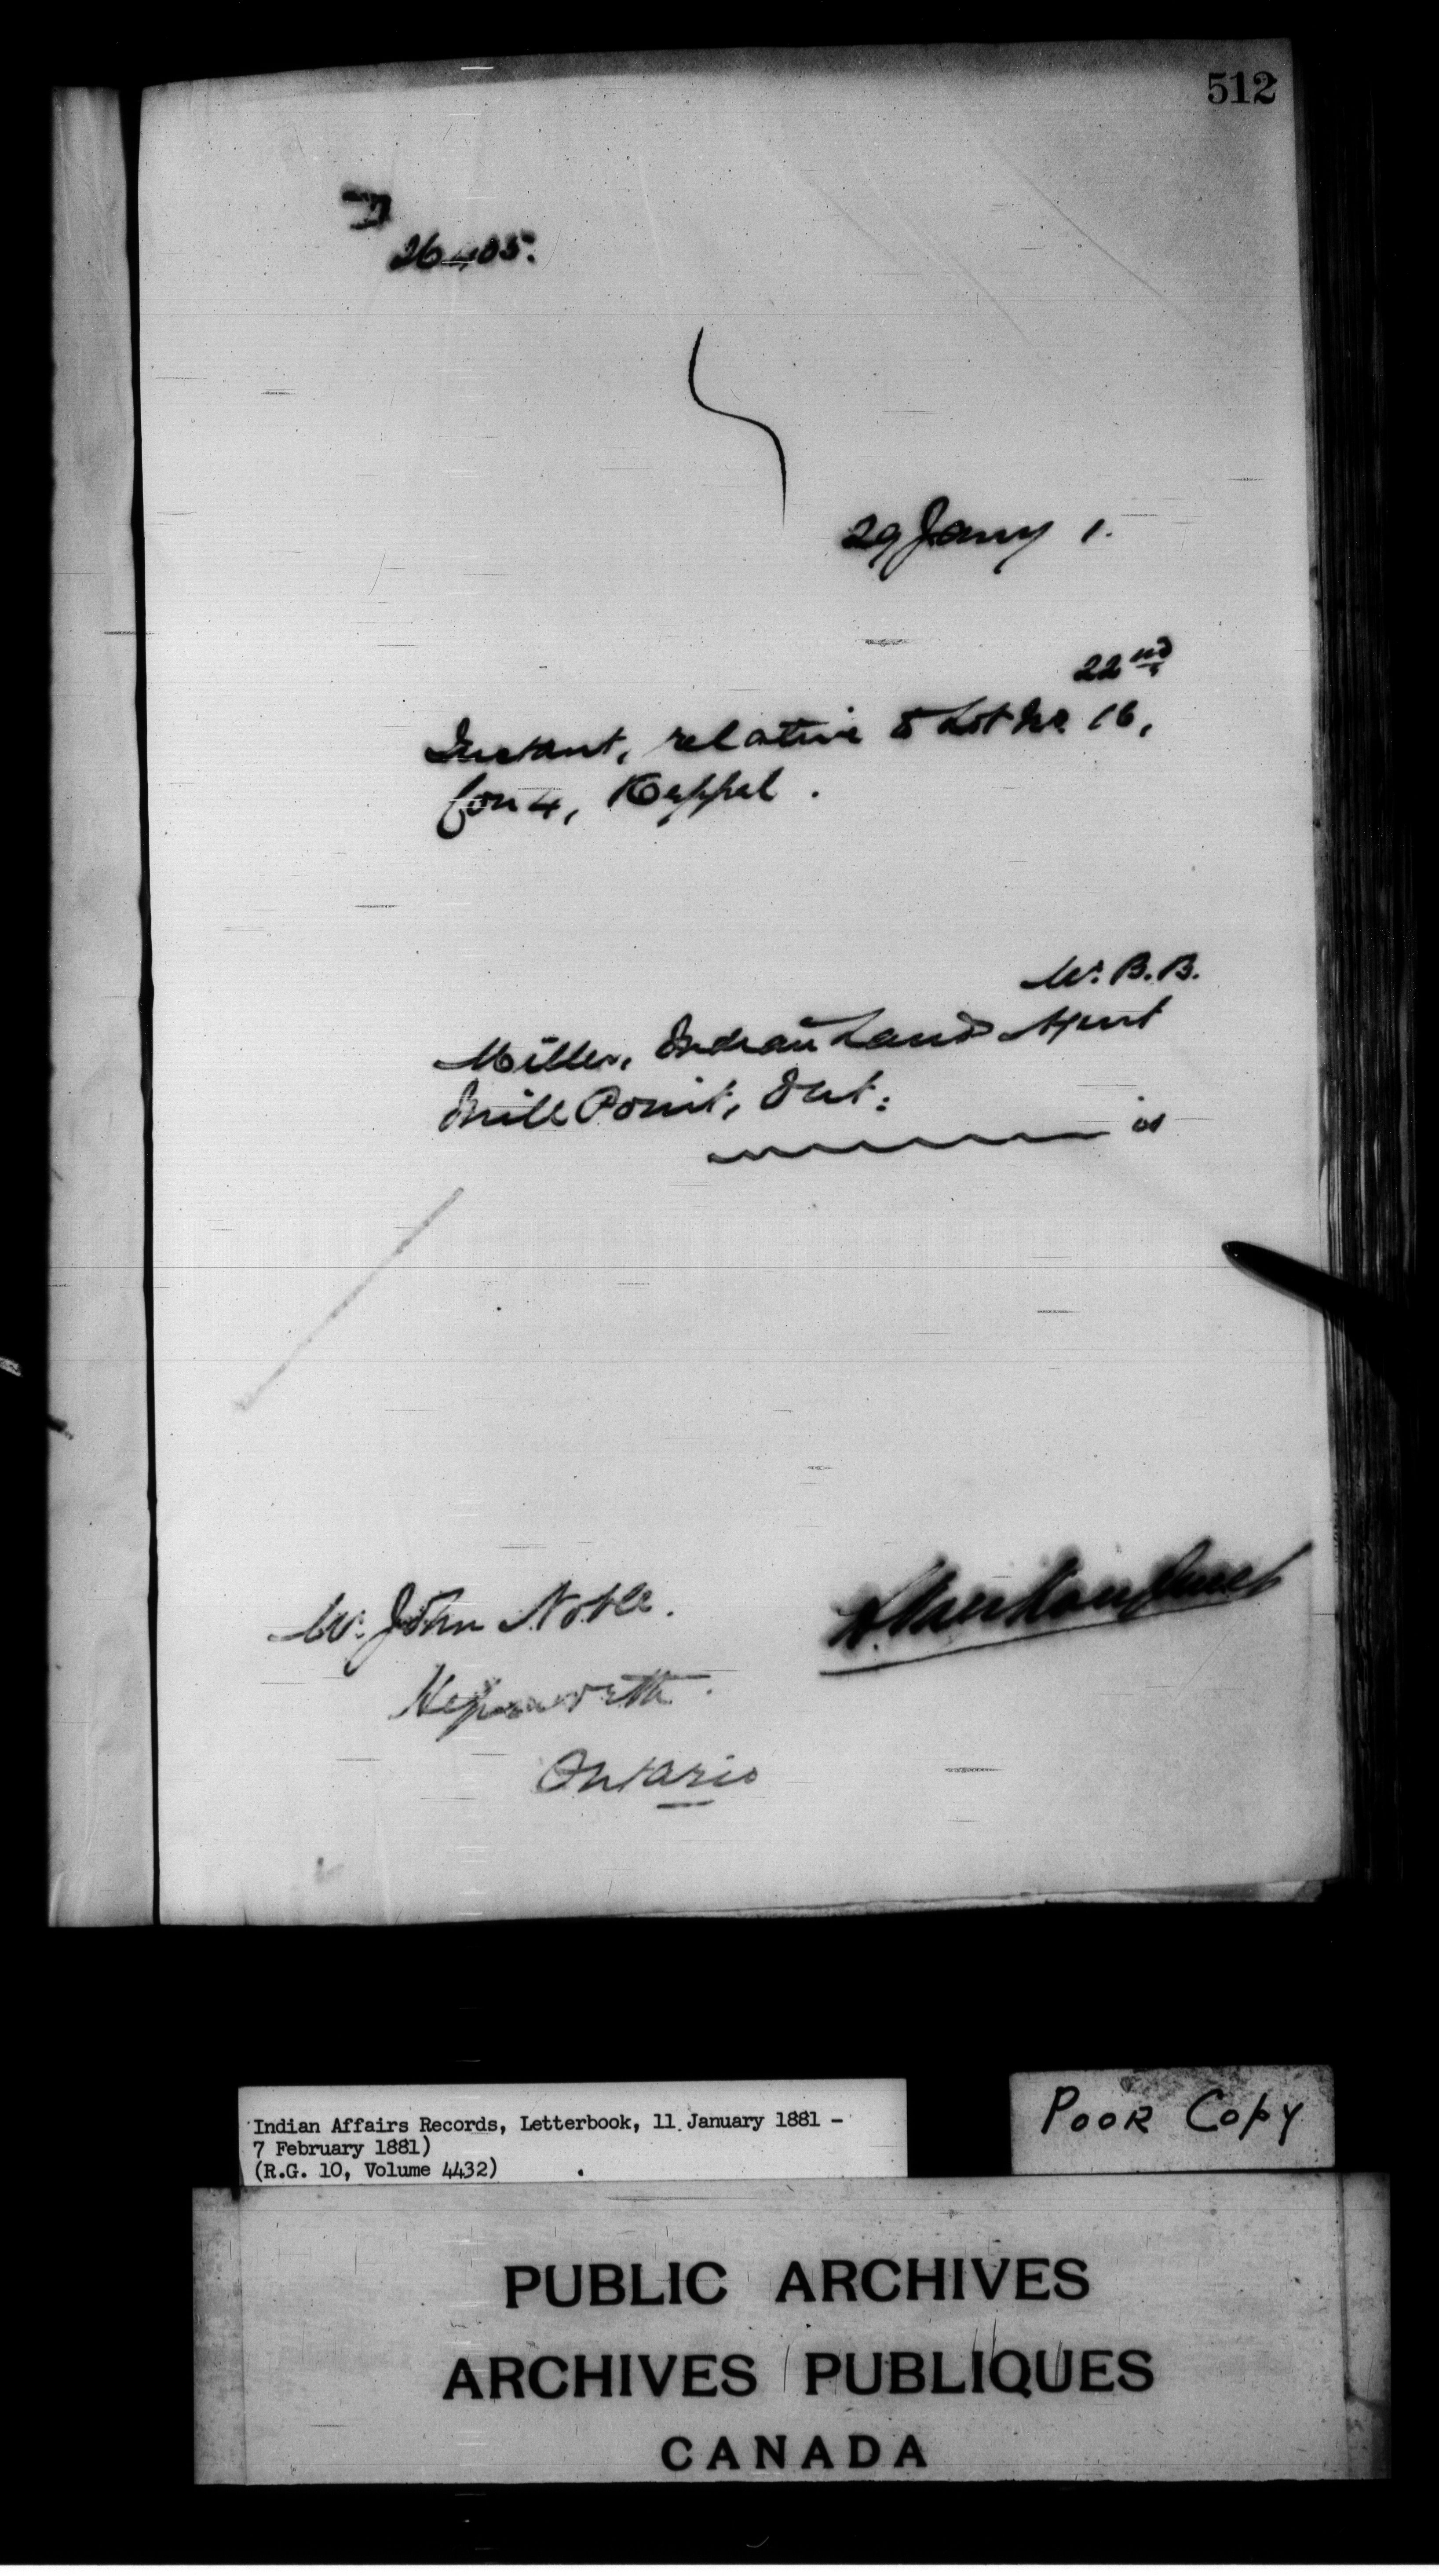 512
29 Jany 1.
22nd
Instant, relative to Lot No. 16,
Con 4, Keppel.
Mr. B. B.
Miller, Indian Land Agent
Mill Point, Ont:
is
Mr. John Noble.
Hepworth.
Ontario
Indian Affairs Records, Letterbook, 11 January 1881 -
7 February 1881)
(R.G. 10, Volume 4432)
POOR COPY
PUBLIC ARCHIVES
ARCHIVES PUBLIQUES
CANADA